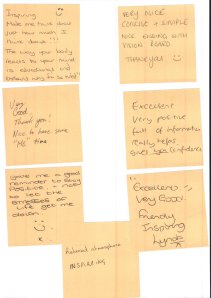 Inspiring
Make me think about
just how much I
think about!!!
The way your body
reacts to your mind
is educational and
VERY NICE
CONCISE + SIMPLE
NICE ENDING WITH
VISION BOARD
THANKYOU
Very
Good.
Thank you!
Nice to have some
"ME" time
Excellent
Very positive
full of information
really helps
gives you confidence
gave me a good
reminder to stay
positive + not
to let the
stresses of
life get me
down.
x
Excellent
Very Good.
Friendly
Inspiring
Lynne
Relaxed atmosphere
INSPIRING